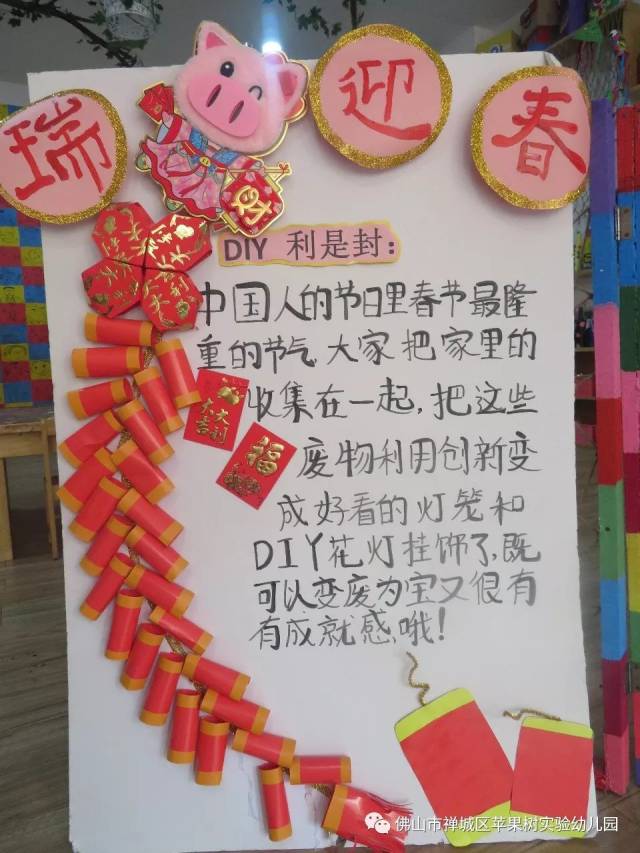 瑞
迎
春
DIY 利是封:
中国人的节日里春节最隆
重的节气,大家把家里的
收集在一起,把这些
废物利用创新变
成好看的灯笼和
DIY花灯挂饰了,既
可以变废为宝又很有
有成就感,哦!
大吉大利
福
佛山市禅城区苹果树实验幼儿园